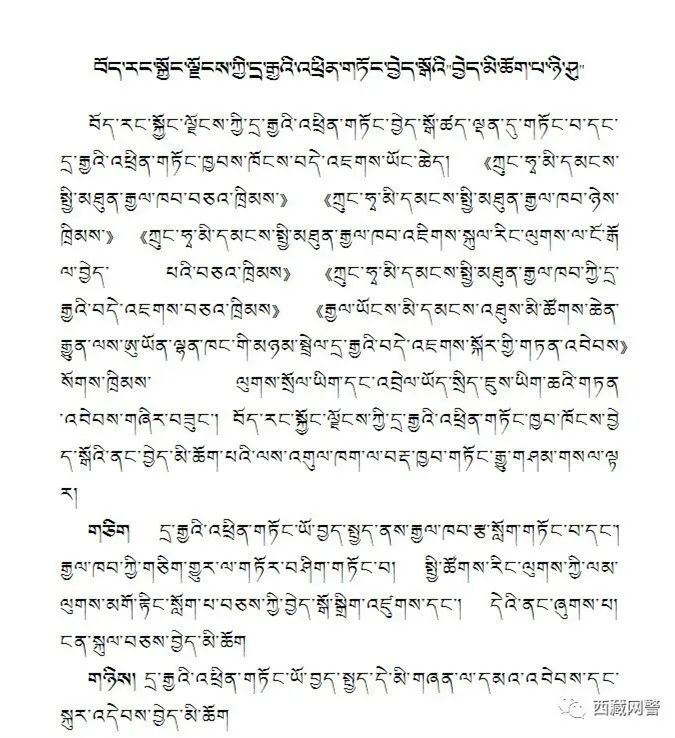 བོད་རང་སྐྱོང་ལྗོངས་ཀྱི་དྲ་རྒྱའི་འཕྲིན་གཏོང་བྱེད་སྒོའི་"བྱེད་མི་ཆོག་པ་ཉི་ཤུ"
བོད་རང་སྐྱོང་ལྗོངས་ཀྱི་དྲ་རྒྱའི་འཕྲིན་གཏོང་བྱེད་སྒོ་ཚད་ལྡན་དུ་གཏོང་བ་དང་
དྲ་རྒྱའི་འཕྲིན་གཏོང་ཁྱབས་ཁོངས་བདེ་འཇགས་ཡོང་ཆེད། 《ཀྲུང་ཧྭ་མི་དམངས་
སྤྱི་མཐུན་རྒྱལ་ཁབ་བཅའ་ཁྲིམས་》 《ཀྲུང་ཧྭ་མི་དམངས་སྤྱི་མཐུན་རྒྱལ་ཁབ་ཉེས་
ཁྲིམས་》 《ཀྲུང་ཧྭ་མི་དམངས་སྤྱི་མཐུན་རྒྱལ་ཁབ་འཇིགས་སྐུལ་རིང་ལུགས་ལ་ངོ་རྒོ
ལ་བྱེད་ པའི་བཅའ་ཁྲིམས》 《ཀྲུང་ཧྭ་མི་དམངས་སྤྱི་མཐུན་རྒྱལ་ཁབ་ཀྱི་དྲ་
རྒྱའི་བདེ་འཇགས་བཅའ་ཁྲིམས》 《རྒྱལ་ཡོངས་མི་དམངས་འཐུས་མི་ཚོགས་ཆེན་
རྒྱུན་ལས་ཨུ་ཡོན་ལྷན་ཁང་གི་མཉམ་སྦྲེལ་དྲ་རྒྱའི་བདེ་འཇགས་སྐོར་གྱི་གཏན་འབེབས》
སོགས་ཁྲིམས་ ལུགས་སྲོལ་ཡིག་དང་འབྲེལ་ཡོད་སྲིད་ཇུས་ཡིག་ཆའི་གཏན
་འབེབས་གཞིར་བཟུང་། བོད་རང་སྐྱོང་ལྗོངས་ཀྱི་དྲ་རྒྱའི་འཕྲིན་གཏོང་ཁྱབ་ཁོངས་བྱེ
ད་སྒོའི་ནང་བྱེད་མི་ཆོག་པའི་ལས་འགུལ་ཁག་ལ་བརྡ་ཁྱབ་གཏོང་རྒྱུ་གཤམ་གསལ་ལྟ
ར།
གཅིག དྲ་རྒྱའི་འཕྲིན་གཏོང་ཡོ་བྱད་སྤྱད་ནས་རྒྱལ་ཁབ་རྩ་སློག་གཏོང་བ་དང་།
རྒྱལ་ཁབ་ཀྱི་གཅིག་གྱུར་ལ་གཏོར་བཤིག་གཏོང་བ། སྤྱི་ཚོགས་རིང་ལུགས་ཀྱི་ལམ་
ལུགས་མགོ་རྟིང་སློག་པ་བཅས་ཀྱི་བྱེད་སྒོ་སྒྲིག་འཛུགས་དང་། དེའི་ནང་ཞུགས་པ།
ངན་སྐུལ་བཅས་བྱེད་མི་ཆོག
གཉིས། དྲ་རྒྱའི་འཕྲིན་གཏོང་ཡོ་བྱད་སྤྱད་དེ་མི་གཞན་ལ་དམའ་འབེབས་དང་
སྐུར་འདེབས་བྱེད་མི་ཆོག
西藏网警